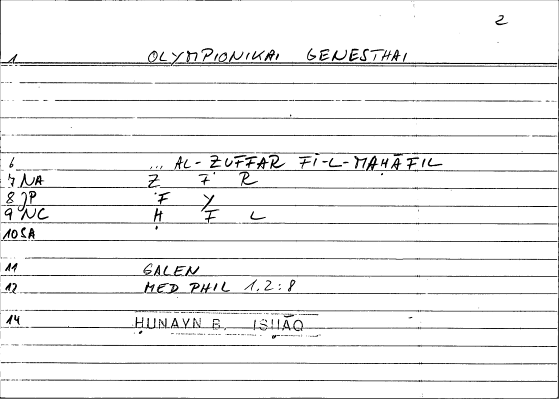 2
1 OLYMPIONIKAI GENESTHAI
6 ... AL-ZUFFAR FĪ-L-MAḤĀFIL
7 NA Z F R
8 JP F Y
9 NC Ḥ F L
10 SA
11 GALEN
12 MED PHIL 1.2:8
14 ḤUNAYN B. ISḤĀQ